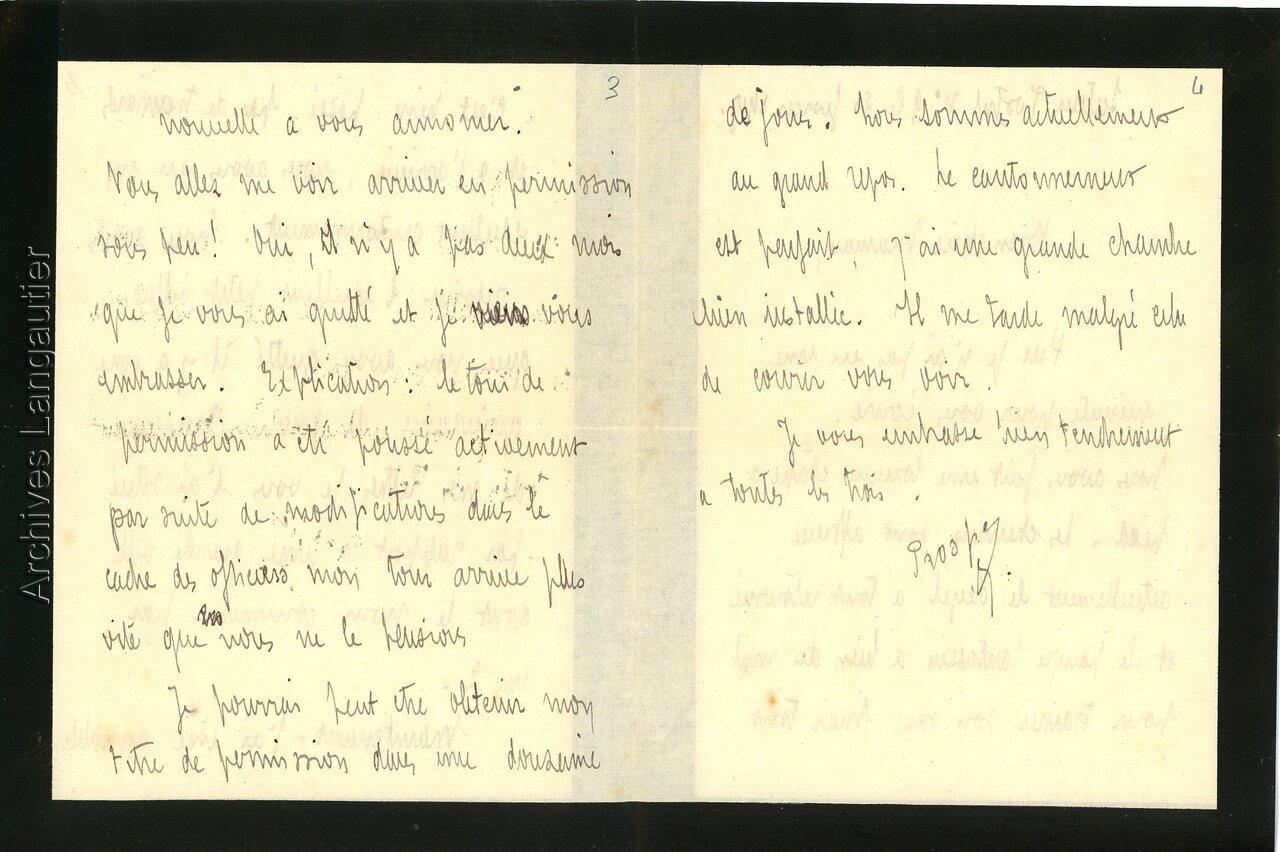 3
nouvelle a vous annoncer.
Vous allez me voir arriver en permission
sous peu ! Oui, il n'y a pas deux mois
que je vous ai quitté et je viens vous
embrasser. Explication : le tour de
permission a été poussé activement
par suite de modifications dans le
cadre des officiers mon tour arrive plus
vite que nous ne le pensions
Je pourrai peut etre obtenir mon
titre de permission dans une douzaine
4
de jours. Nous sommes actuellement
au grand repos. Le cantonnement
est parfait, j'ai une grande chambre
bien installée. Il me tarde malgré cela
de courir vous voir.
Je vous embrasse bien tendrement
a toutes les trois.
Prosper.
Archives Langautier